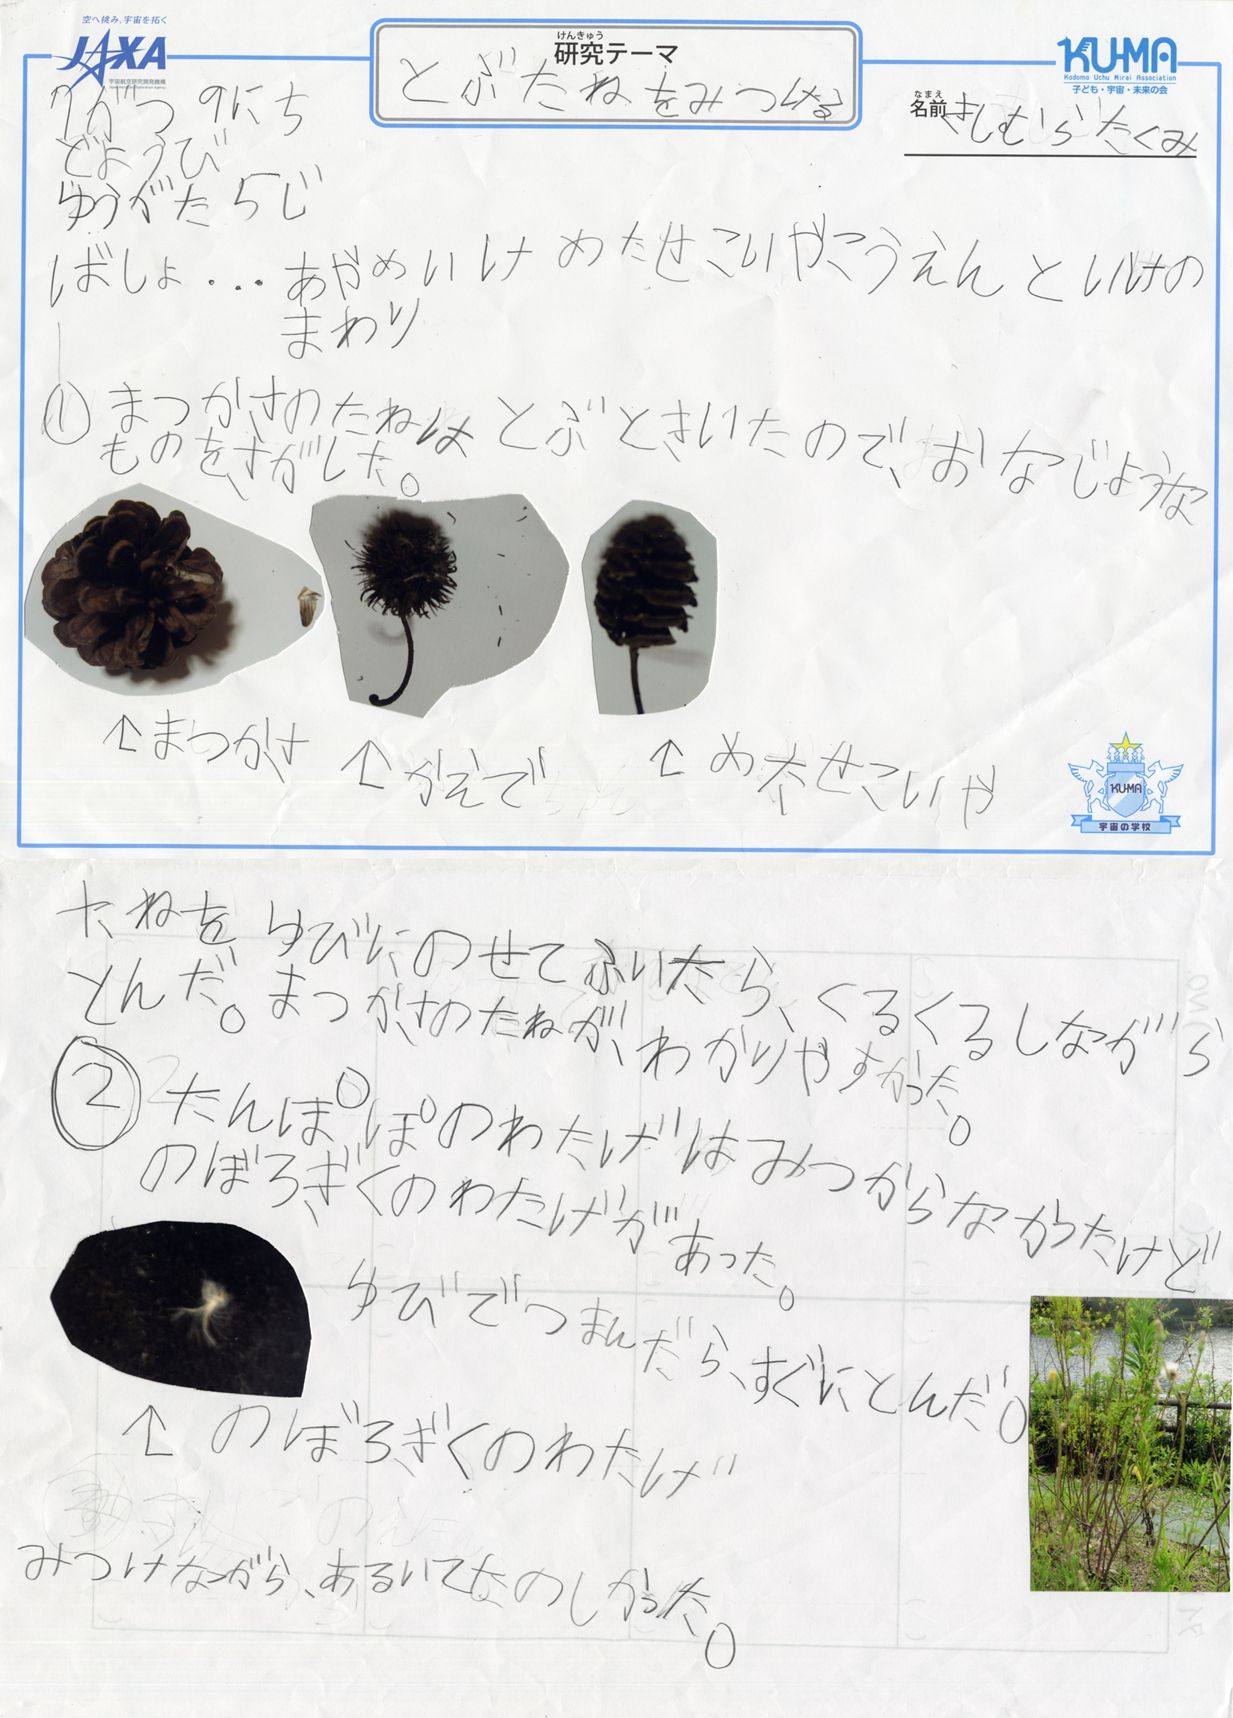 空へ挑み、宇宙を拓く
JAXA
宇宙航空研究開発機構
Japan Aerospace Exploration Agency
けんきゅう
研究テーマ
とぶたねをみつける
KU-MA
Kodomo Uchu Mirai Association
子ども・宇宙・未来の会
なまえ
名前 きしむらたくみ
7がつ 9にち
どようび
ゆうがた5じ
ばしょ...あやめいけ めたせこいやこうえん といけの
まわり
① まつかさのたねは とぶときいたので、おなじような
ものをさがした。
↑まつかさ
↑かえで
↑めたせこいや
KUMA
宇宙の学校
たねを ゆびにのせてふいたら、くるくるしながら
とんだ。まつかさのたねが、わかりやすかった。
② たんぽぽのわたげはみつからなかったけど
のぼろぎくのわたげがあった。
ゆびでつまんだら、すぐにとんだ。
↑ のぼろぎくのわたげ
みつけながら、あるいてたのしかった。